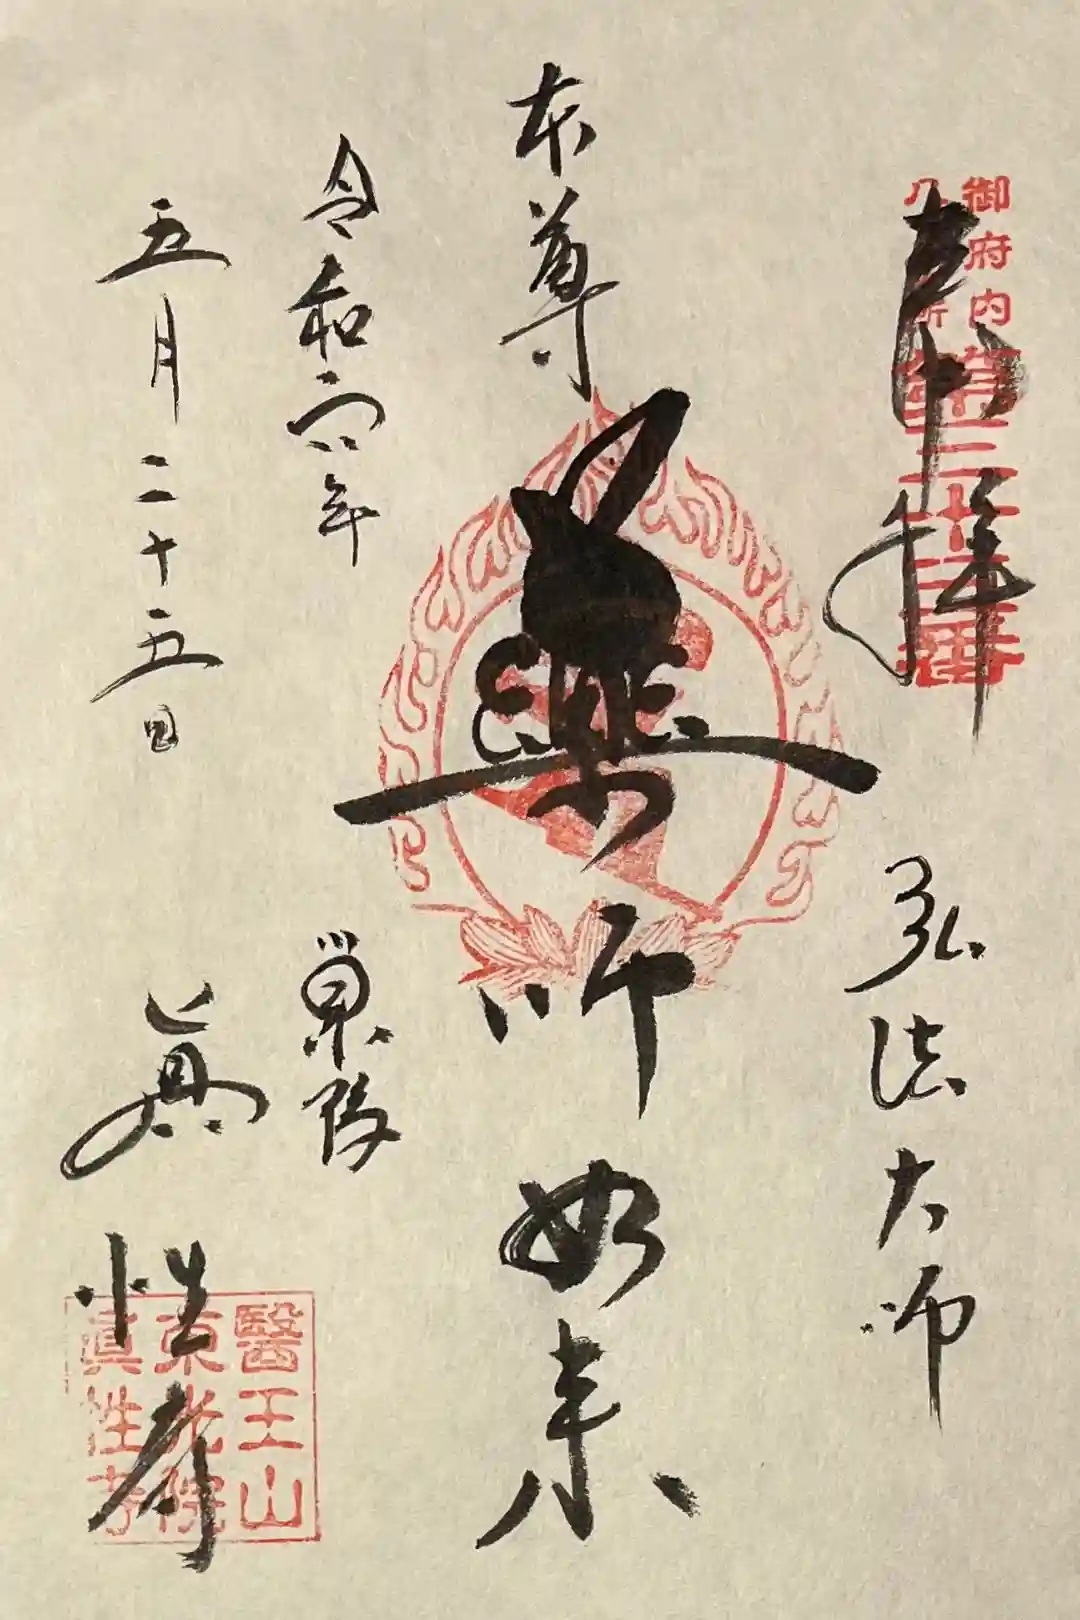 御府内
第三十三番
奉拝 弘法大師
本尊 薬師如来
令和六年 巣鴨
五月二十五日 眞性寺
醫王山
東光院
眞性寺